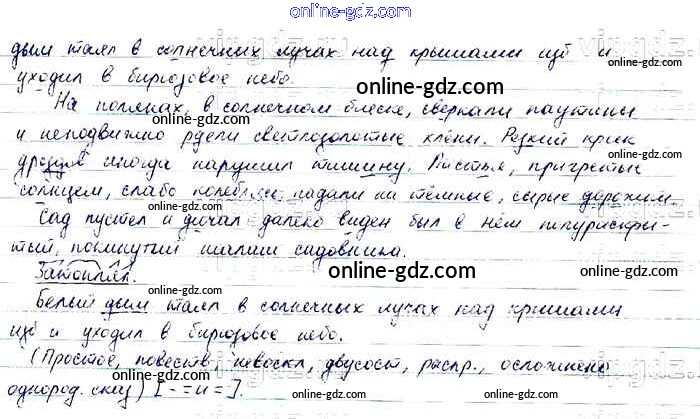 online-gdz.com
дым таял в солнечных лучах над крышами изб и
уходил в бирюзовое небо.
online-gdz.com
На полянах, в солнечном блеске, сверкали паутины
и неподвижно рдели светлозолотые клёны. Резкий крик
дроздов иногда нарушал тишину. Листья, пригретые
солнцем, слабо колеблясь, падали на тёмные, сырые дорожки.
online-gdz.com
Сад пустел и дичал далеко виден был в нём полураскры-
тый, покинутый шалаш садовника.
online-gdz.com
online-gdz.com
Белый дым таял в солнечных лучах над крышами
изб и уходил в бирюзовое небо.
online-gdz.com
(Простое, повеств, невоскл, двусост, распр., осложнено
однород. сказ) [- = и =].
online-gdz.com
online-gdz.com